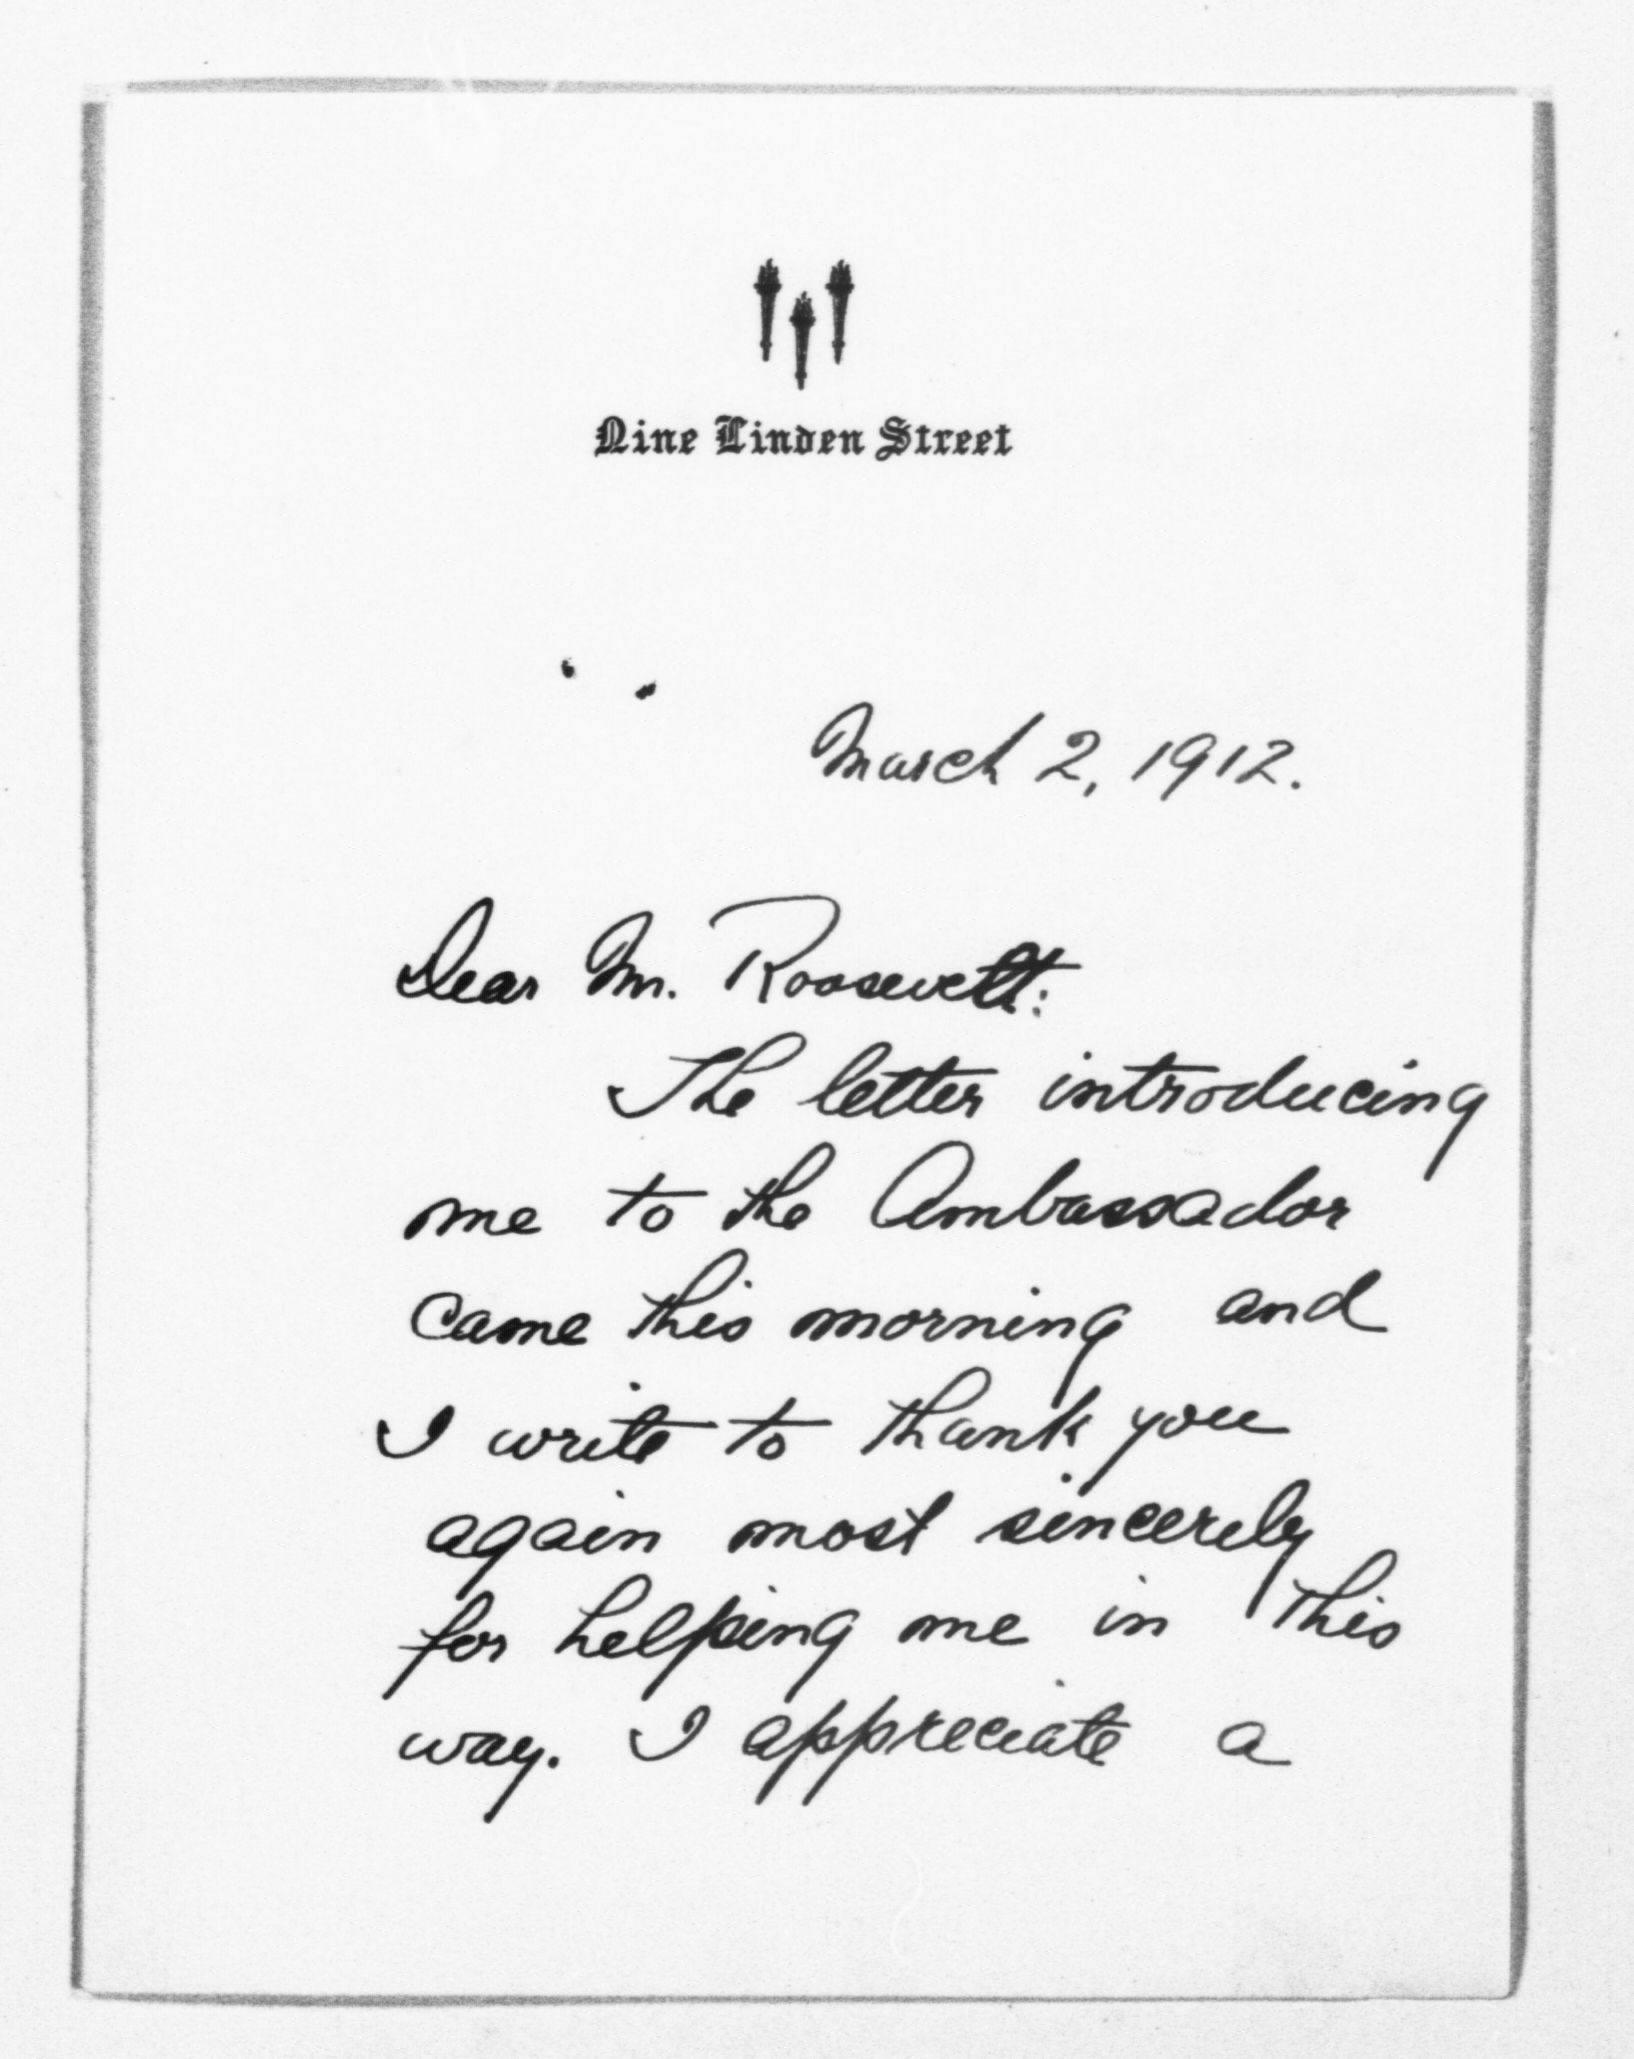 Nine Linden Street
March 2, 1912.
Dear Mr. Roosevelt:
The letter introducing
me to the Ambassador
came this morning and
I write to thank you
again most sincerely
for helping me in this
way. I appreciate a